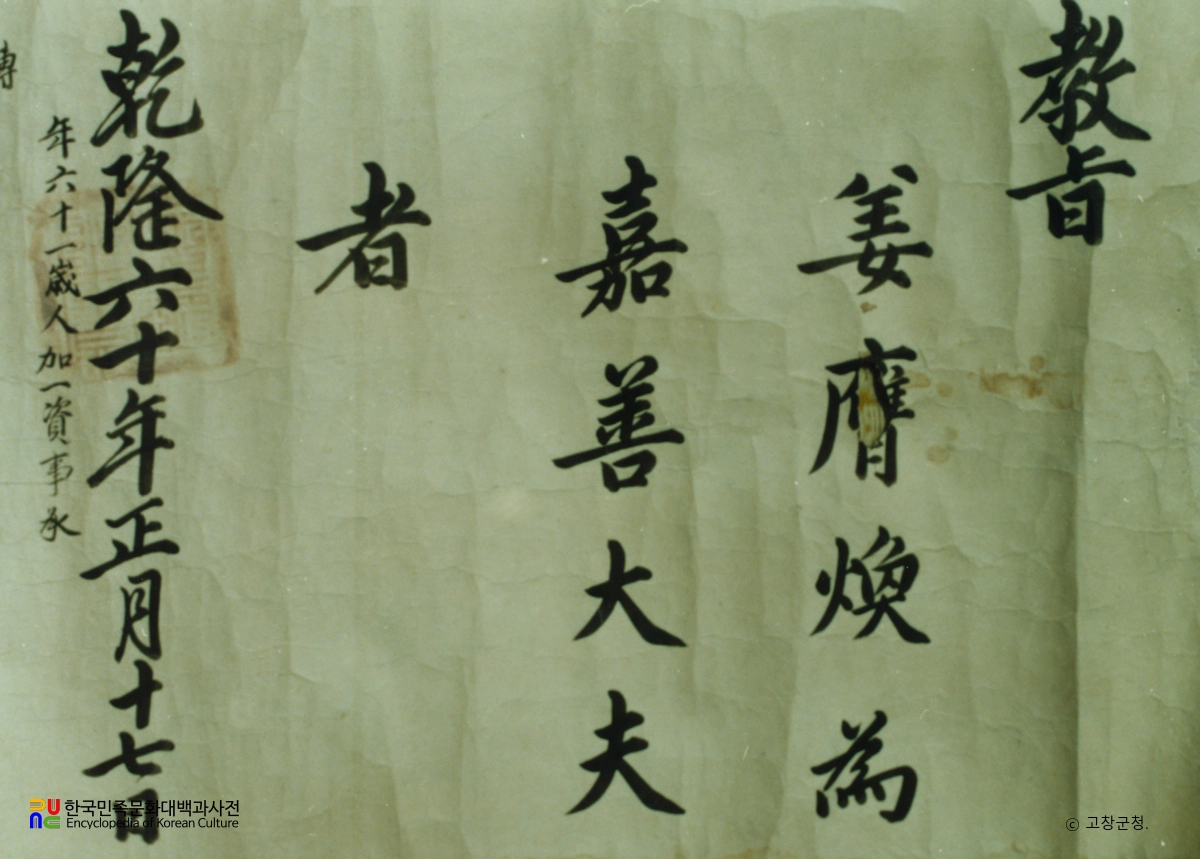 教旨
姜膺煥為
嘉善大夫
者
乾隆六十年正月十七日
年六十一歲人加一資事承
傳
한국민족문화대백과사전
Encyclopedia of Korean Culture
ⓒ 고창군청.